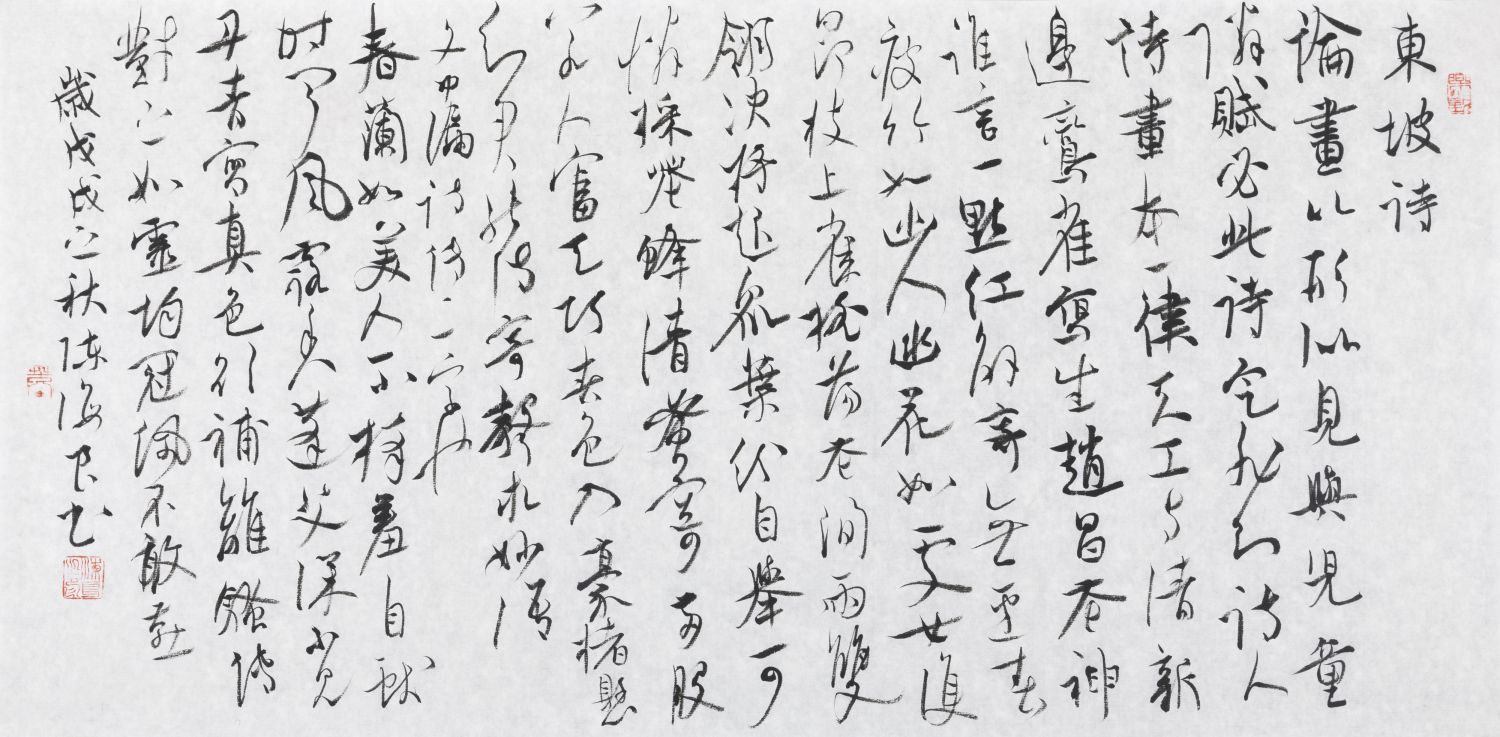 東坡詩
論畫以形似見與兒童
隣賦必此詩定非知詩人
詩畫本一律天工與清新
邊鸞雀寫生趙昌花神
誰言一點紅解寄無邊春
疲竹如幽人幽花如處女
昂枝上雀搖蕩花間雨雙
翎決將起眾葉紛自舉可
憐採花蜂清蜜寄兩股
若人富天巧春色入豪楮懸
知君能詩寄聲求妙語
文中漏詩傳二字
春蘭如美人不採羞自獻
時聞風露香蓬艾深不見
丹青寫真色欲補離騷傳
對之如靈均冠佩不敢燕
歲戊戌之秋陳海良書